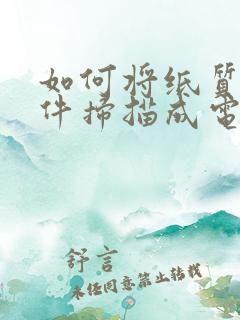 如何将纸质
件扫描成电
舒言
未经同意禁止转载